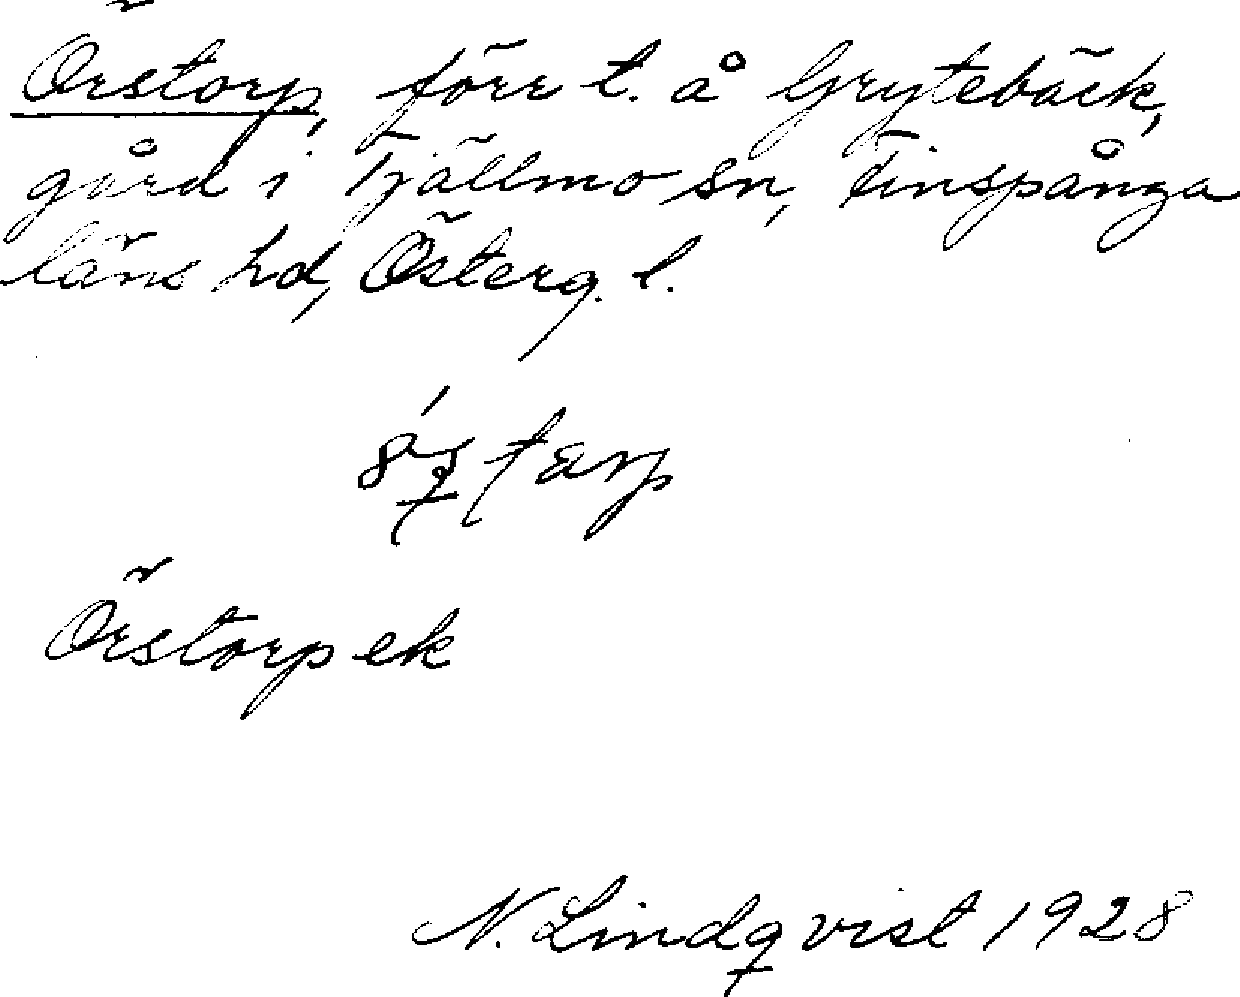 Örstorp, förr t. å Grytebäck,
gård i Tjällmo sn, Finspånga
läns hd, Österg. l.
Örstorp ek
N. Lindqvist 1928